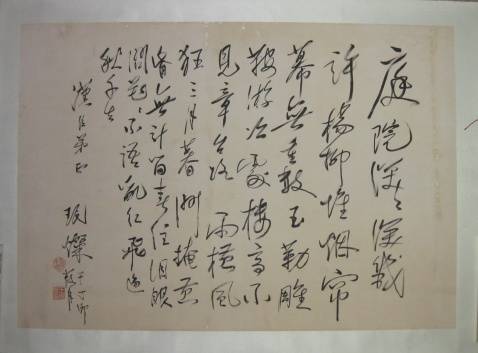 庭院深〻深幾
許楊柳堆烟帘
幕無重數玉勒雕
鞍游冶處樓高不
見章台路雨橫風
狂三月暮門掩黃
昏無計留春住泪眼
問花〻不語亂紅飛過
秋千去